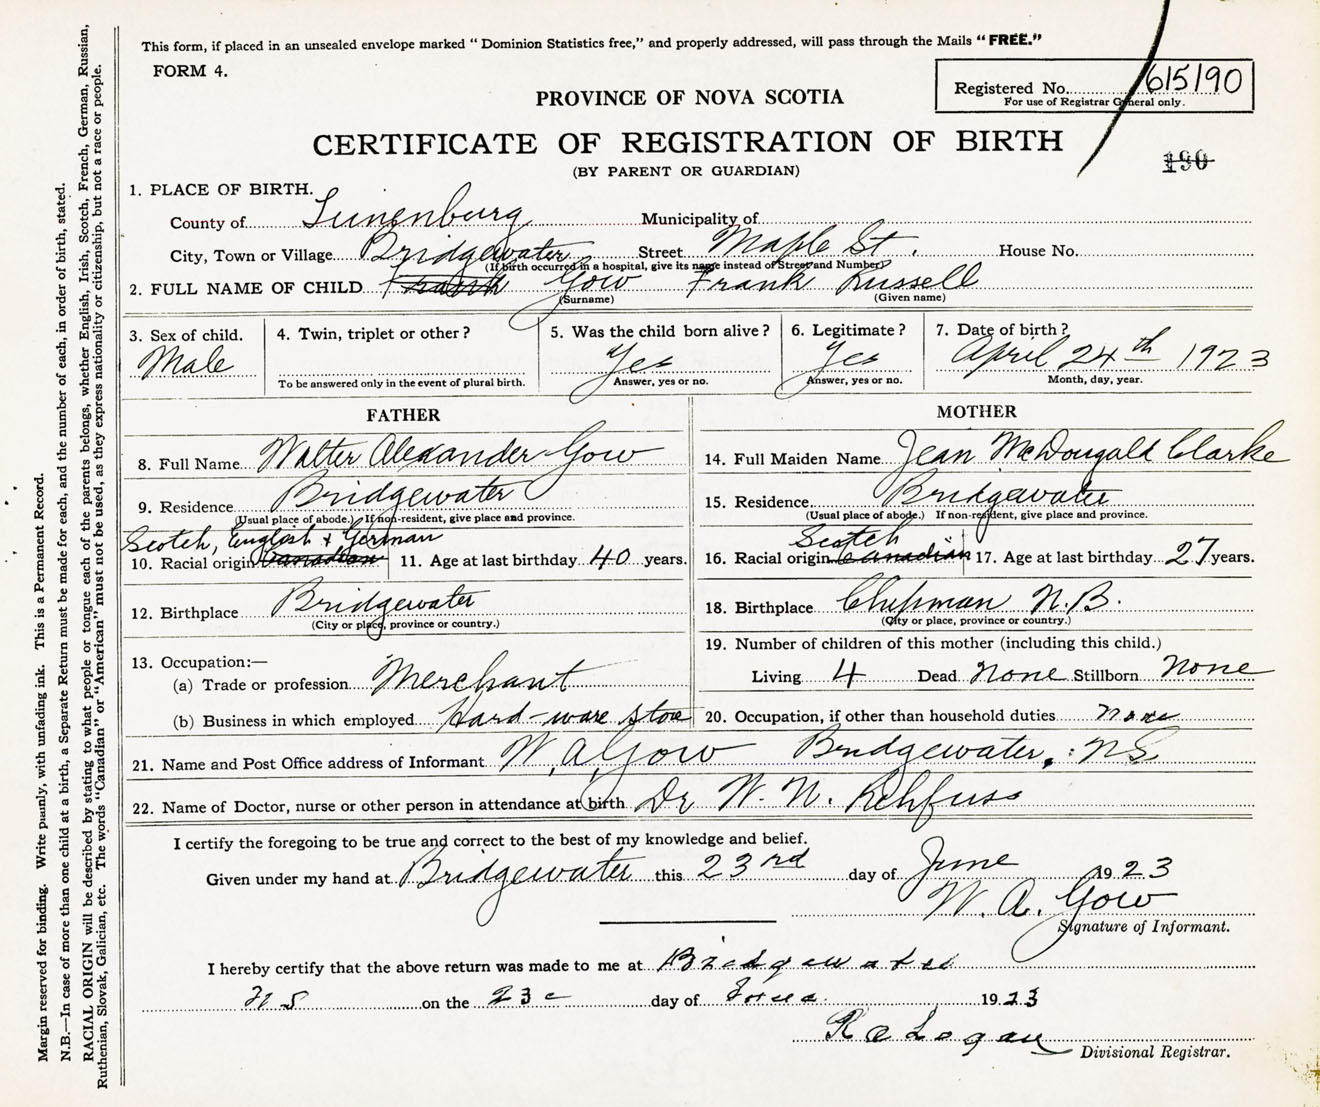 This form, if placed in an unsealed envelope marked " Dominion Statistics free," and properly addressed, will pass through the Mails "FREE."
FORM 4.
Registered No. 615190
For use of Registrar General only.
PROVINCE OF NOVA SCOTIA
CERTIFICATE OF REGISTRATION OF BIRTH
(BY PARENT OR GUARDIAN)
190
1. PLACE OF BIRTH.
County of Lunenburg Municipality of
City, Town or Village Bridgewater Street Maple St. House No.
(If birth occurred in a hospital, give its name instead of Street and Number)
2. FULL NAME OF CHILD Frank Gow Frank Russell
(Surname) (Given name)
3. Sex of child. 4. Twin, triplet or other? 5. Was the child born alive? 6. Legitimate? 7. Date of birth?
Male Yes Yes April 24th 1923
To be answered only in the event of plural birth. Answer, yes or no. Answer, yes or no. Month, day, year.
FATHER MOTHER
8. Full Name Walter Alexander Gow 14. Full Maiden Name Jean McDougald Clarke
9. Residence Bridgewater 15. Residence Bridgewater
(Usual place of abode.) If non-resident, give place and province. (Usual place of abode.) If non-resident, give place and province.
Scotch, English & German Scotch
10. Racial origin Canadian 11. Age at last birthday 40 years. 16. Racial origin Canadian 17. Age at last birthday 27 years.
12. Birthplace Bridgewater 18. Birthplace Chipman N.B.
(City or place, province or country.) (City or place, province or country.)
13. Occupation:— 19. Number of children of this mother (including this child.)
(a) Trade or profession Merchant Living 4 Dead None Stillborn None
(b) Business in which employed Hard-ware store 20. Occupation, if other than household duties none
21. Name and Post Office address of Informant W. A. Gow Bridgewater, NS
22. Name of Doctor, nurse or other person in attendance at birth Dr W. N. Rehfuss
I certify the foregoing to be true and correct to the best of my knowledge and belief.
Given under my hand at Bridgewater this 23rd day of June 1923
W. A. Gow
Signature of Informant.
I hereby certify that the above return was made to me at Bridgewater
N S on the 23 day of June 1923
R a Logan
Divisional Registrar.
Margin reserved for binding. Write plainly, with unfading ink. This is a Permanent Record.
N.B.—In case of more than one child at a birth, a Separate Return must be made for each, and the number of each, in order of birth, stated.
RACIAL ORIGIN will be described by stating to what people or tongue each of the parents belongs, whether English, Irish, Scotch, French, German, Russian,
Ruthenian, Slovak, Galician, etc. The words "Canadian" or "American" must not be used, as they express nationality or citizenship, but not a race or people.